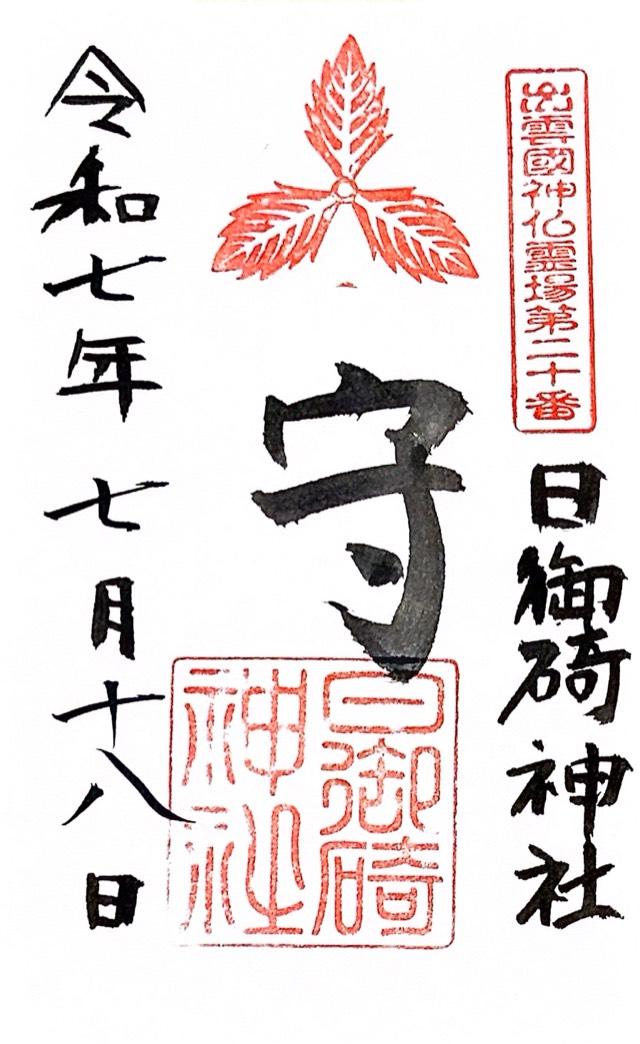 出雲國神仏霊場第二十番
日御碕神社
守
日御碕
神社
令和七年 七月十八日